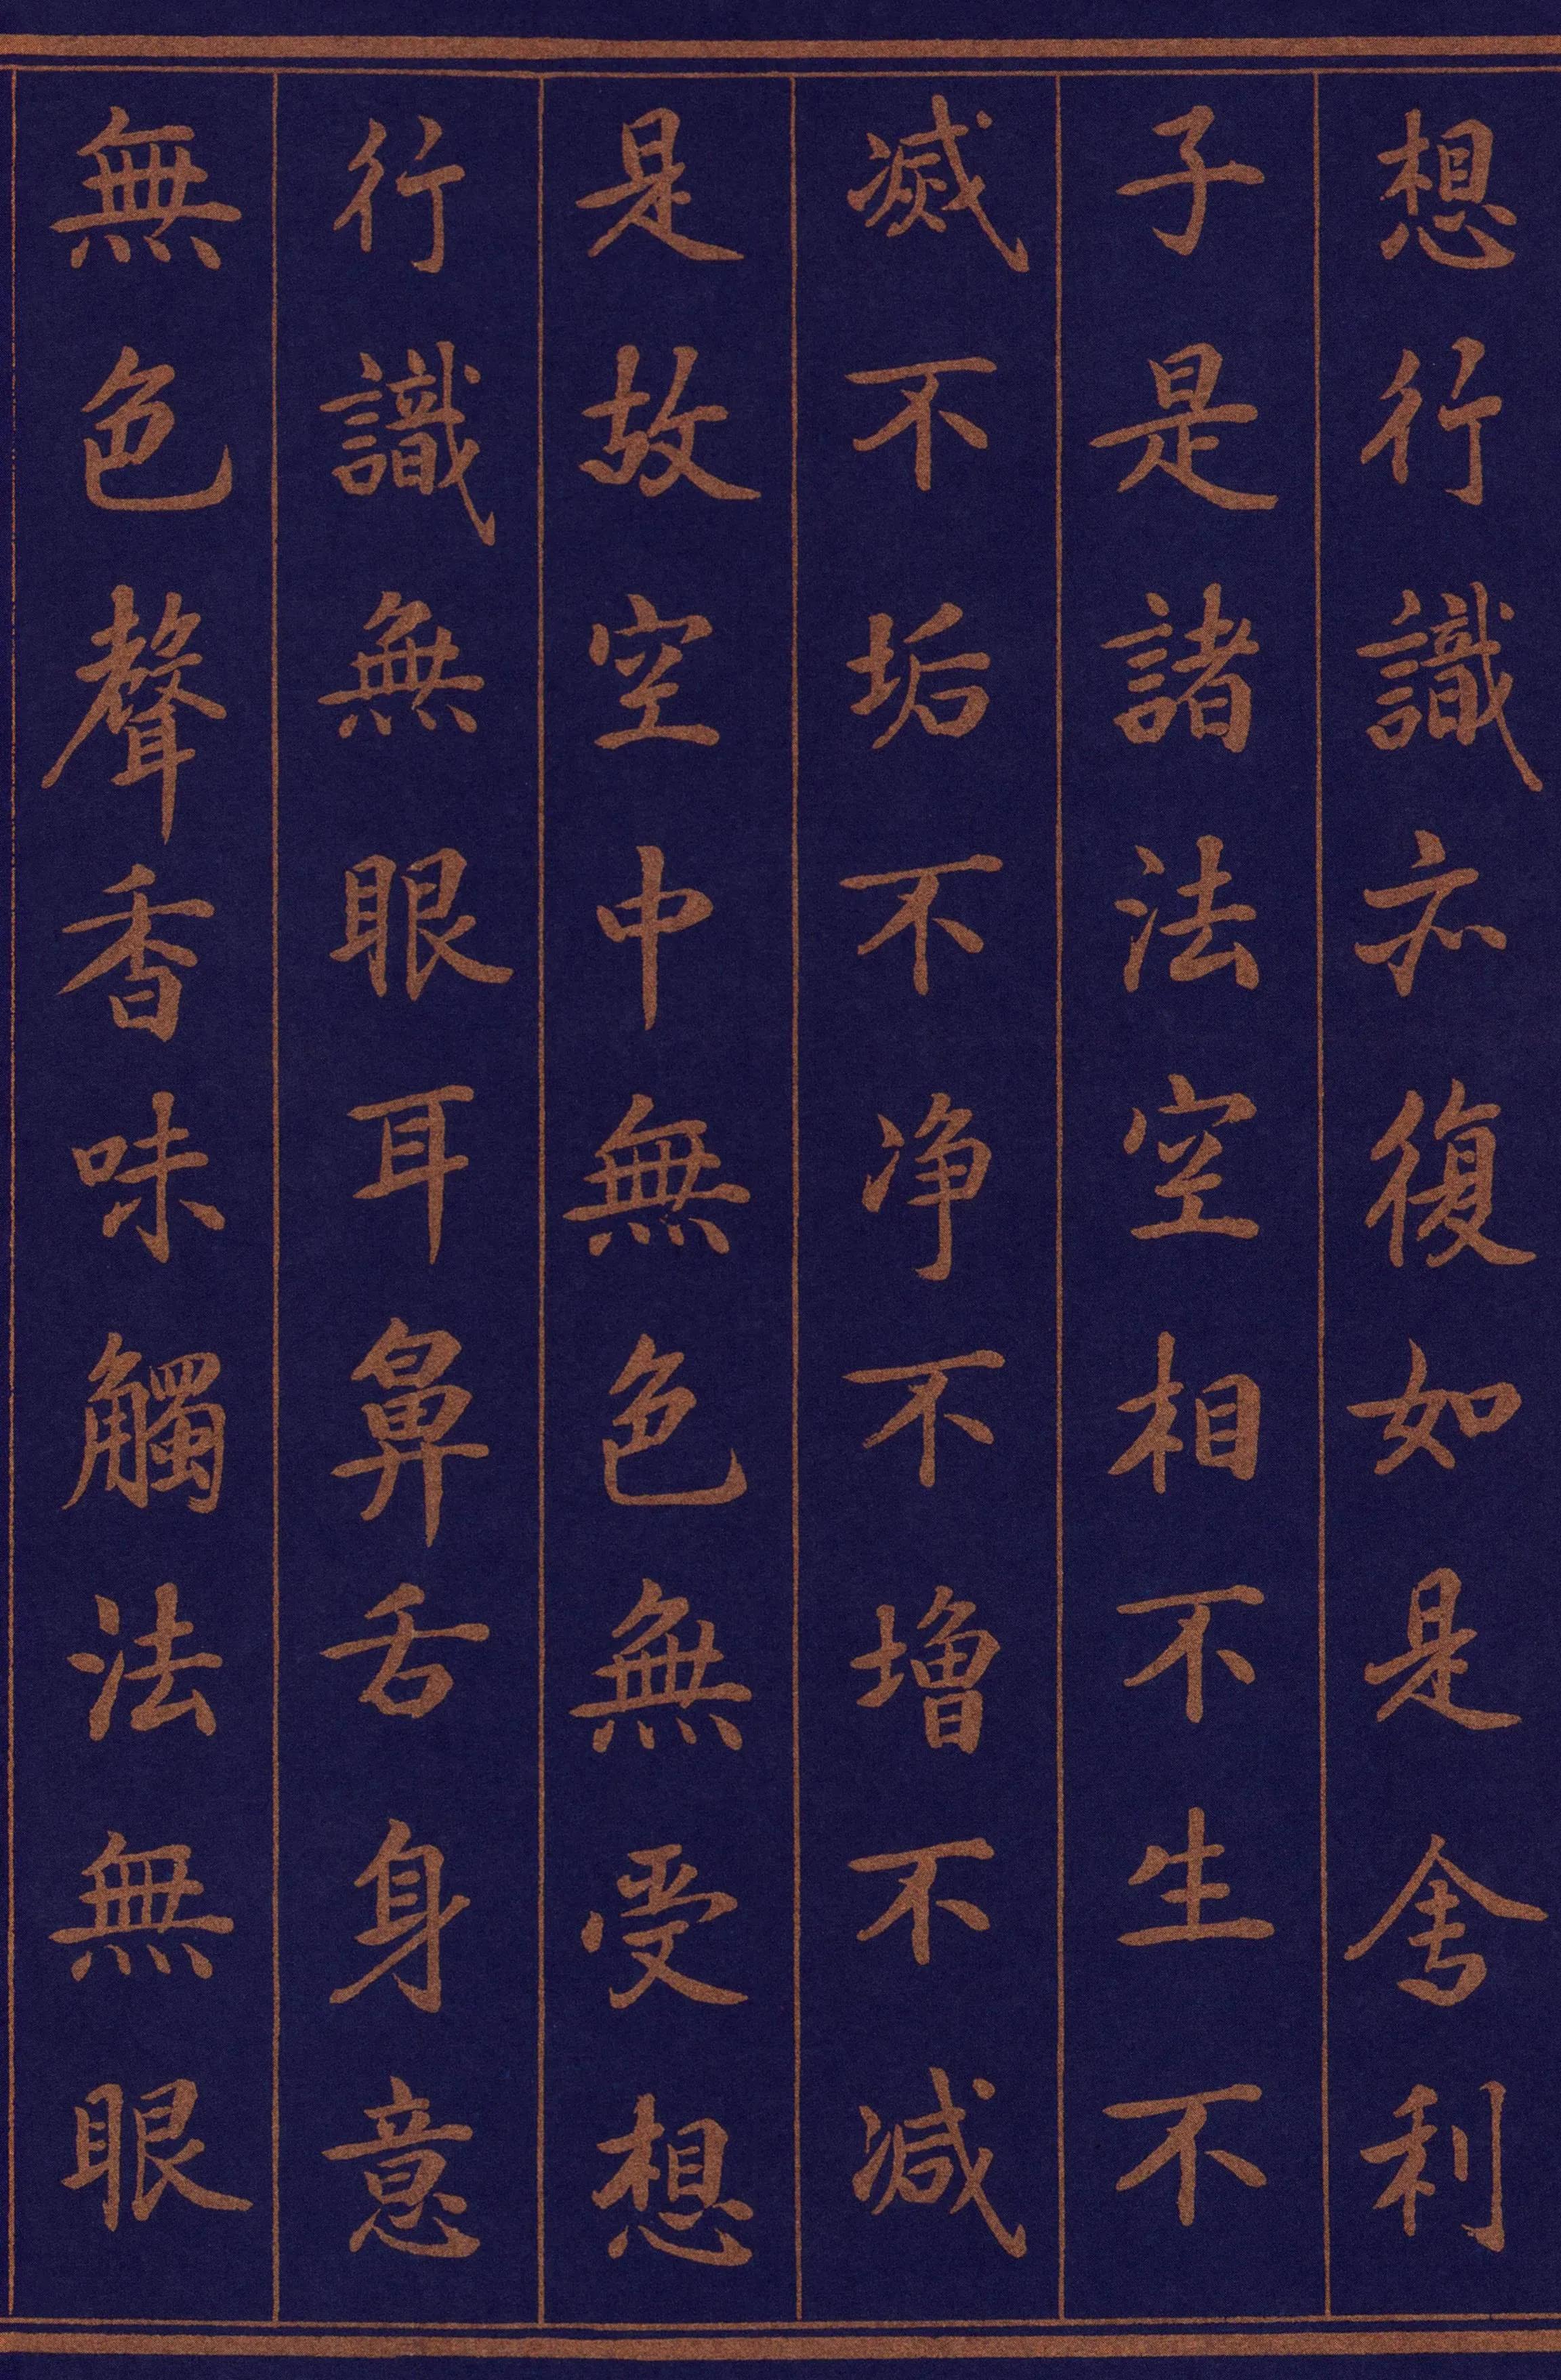 想行識亦復如是舍利
子是諸法空相不生不
滅不垢不淨不增不減
是故空中無色無受想
行識無眼耳鼻舌身意
無色聲香味觸法無眼